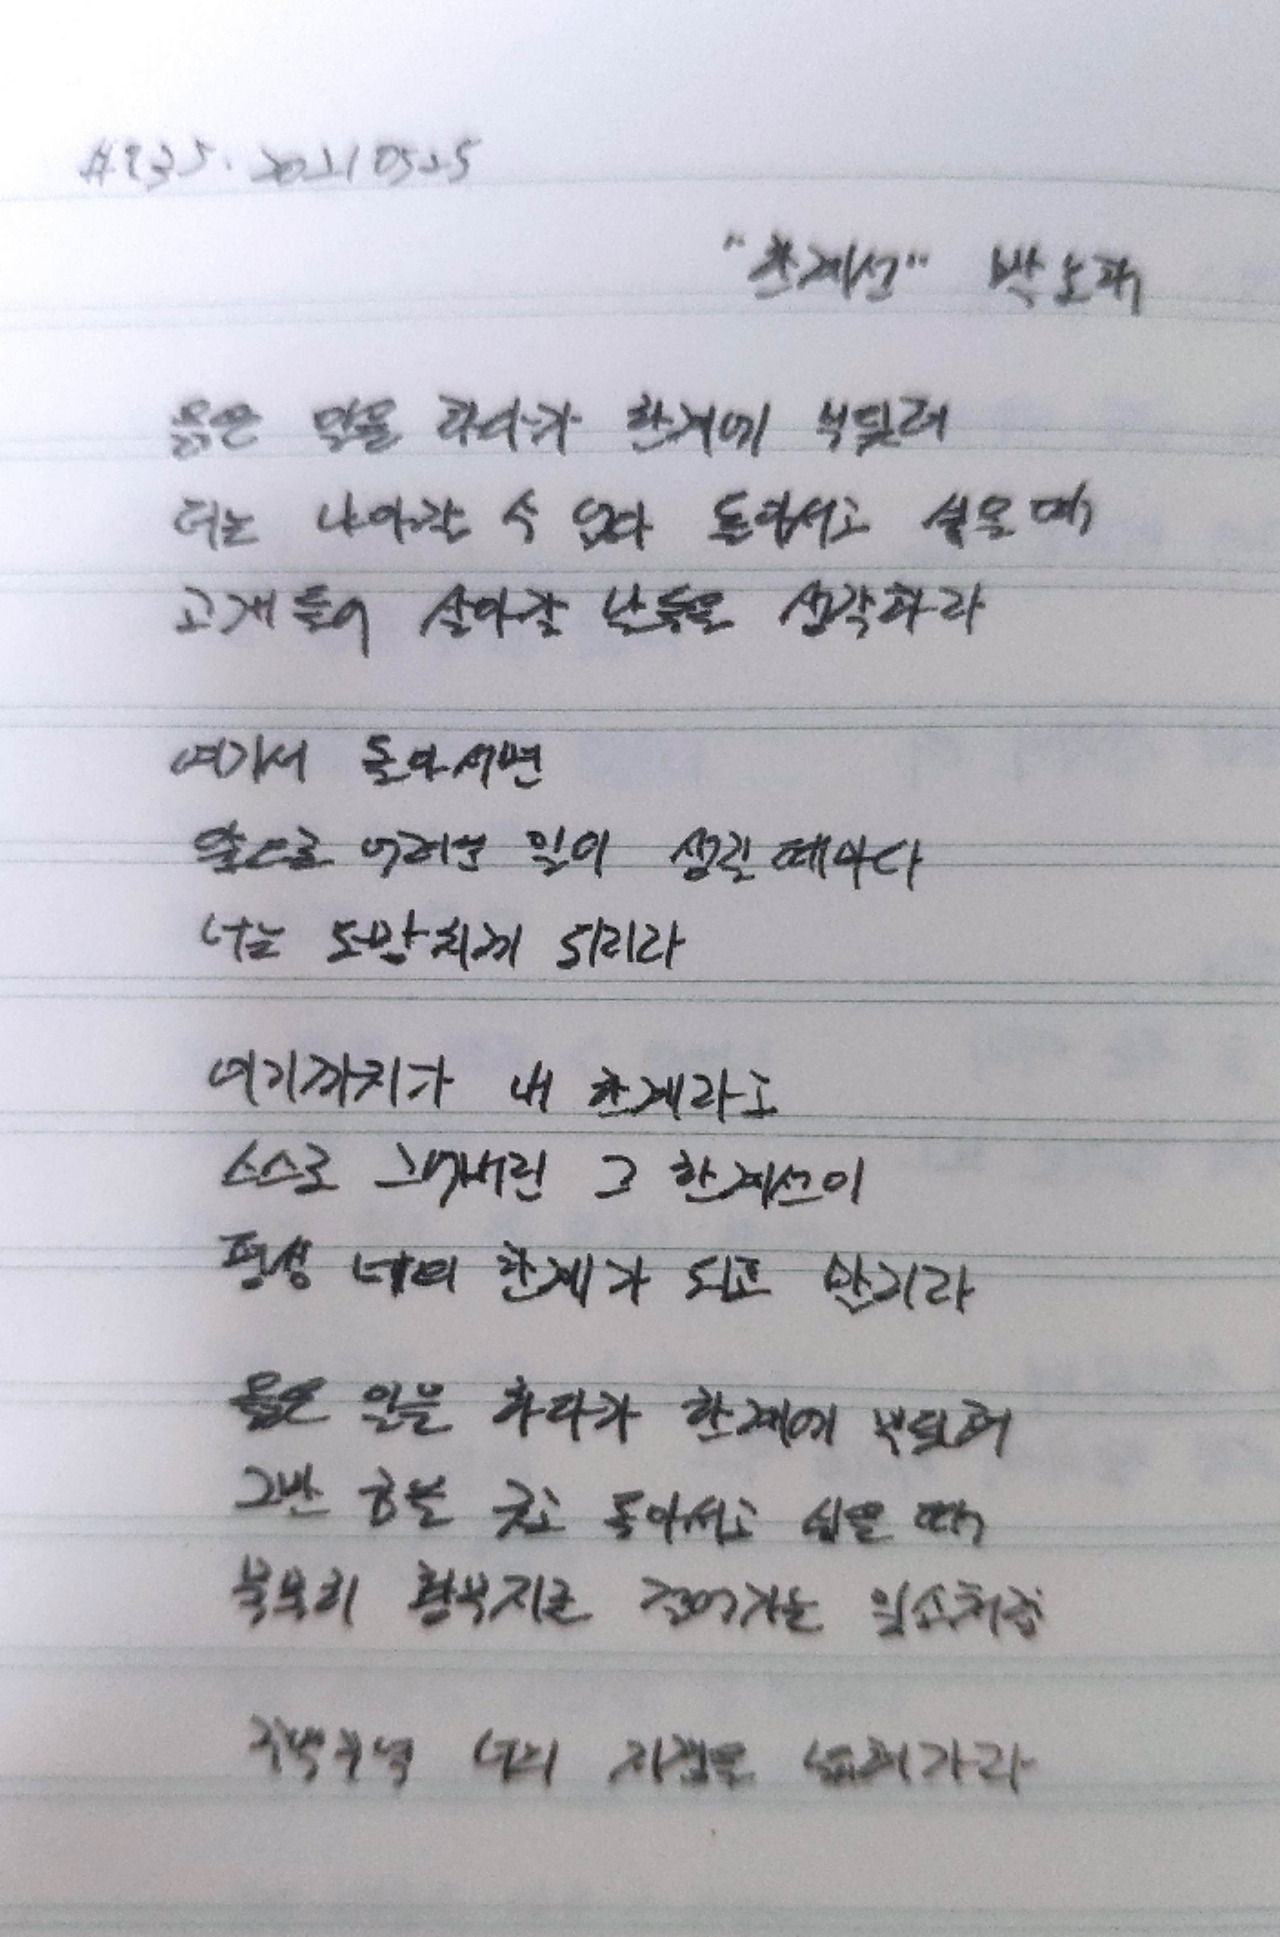 #235. 20210525
"한계선" 박노해
옳은 일을 하다가 한계에 부딪혀
더는 나아갈 수 없다 돌아서고 싶을 때
고개 들어 살아갈 날들을 생각하라
여기서 돌아서면
앞으로 어려운 일이 생길 때마다
너는 도망치게 되리라
여기까지가 내 한계라고
스스로 그어버린 그 한계선이
평생 너의 한계가 되고 만리라
옳은 일을 하다가 한계에 부딪혀
그만 금을 긋고 돌아서고 싶을 때
묵묵히 황무지를 갈아가는 일소처럼
꾸역꾸역 너의 지경을 넓혀가라